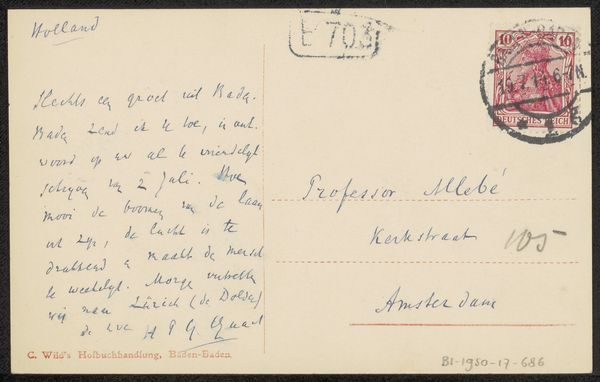 Holland
E 703
10 10
DEUTSCHES REICH
Slechts een groet uit Baden-
Baden zend ik U toe, in ant-
woord op uw al te vriendelijk
schrijven van 2 Juli. Hoe
mooi de boomen van de laan
uit zijn, de lucht is te
drukkend en maakt de mensch
te weekelijk. Morgen vertrekken
wij naar Zürich (de Dolder)
de Uwe H P G Quack
Professor Allebé
Kerkstraat 105
Amsterdam
C. Wild's Hofbuchhandlung, Baden-Baden.
BI-1950-17-686